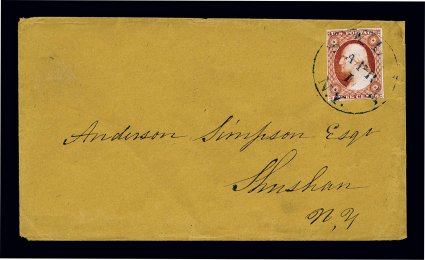 APR
1
N.Y.
Anderson Simpson Esqr
Shushan
N.Y